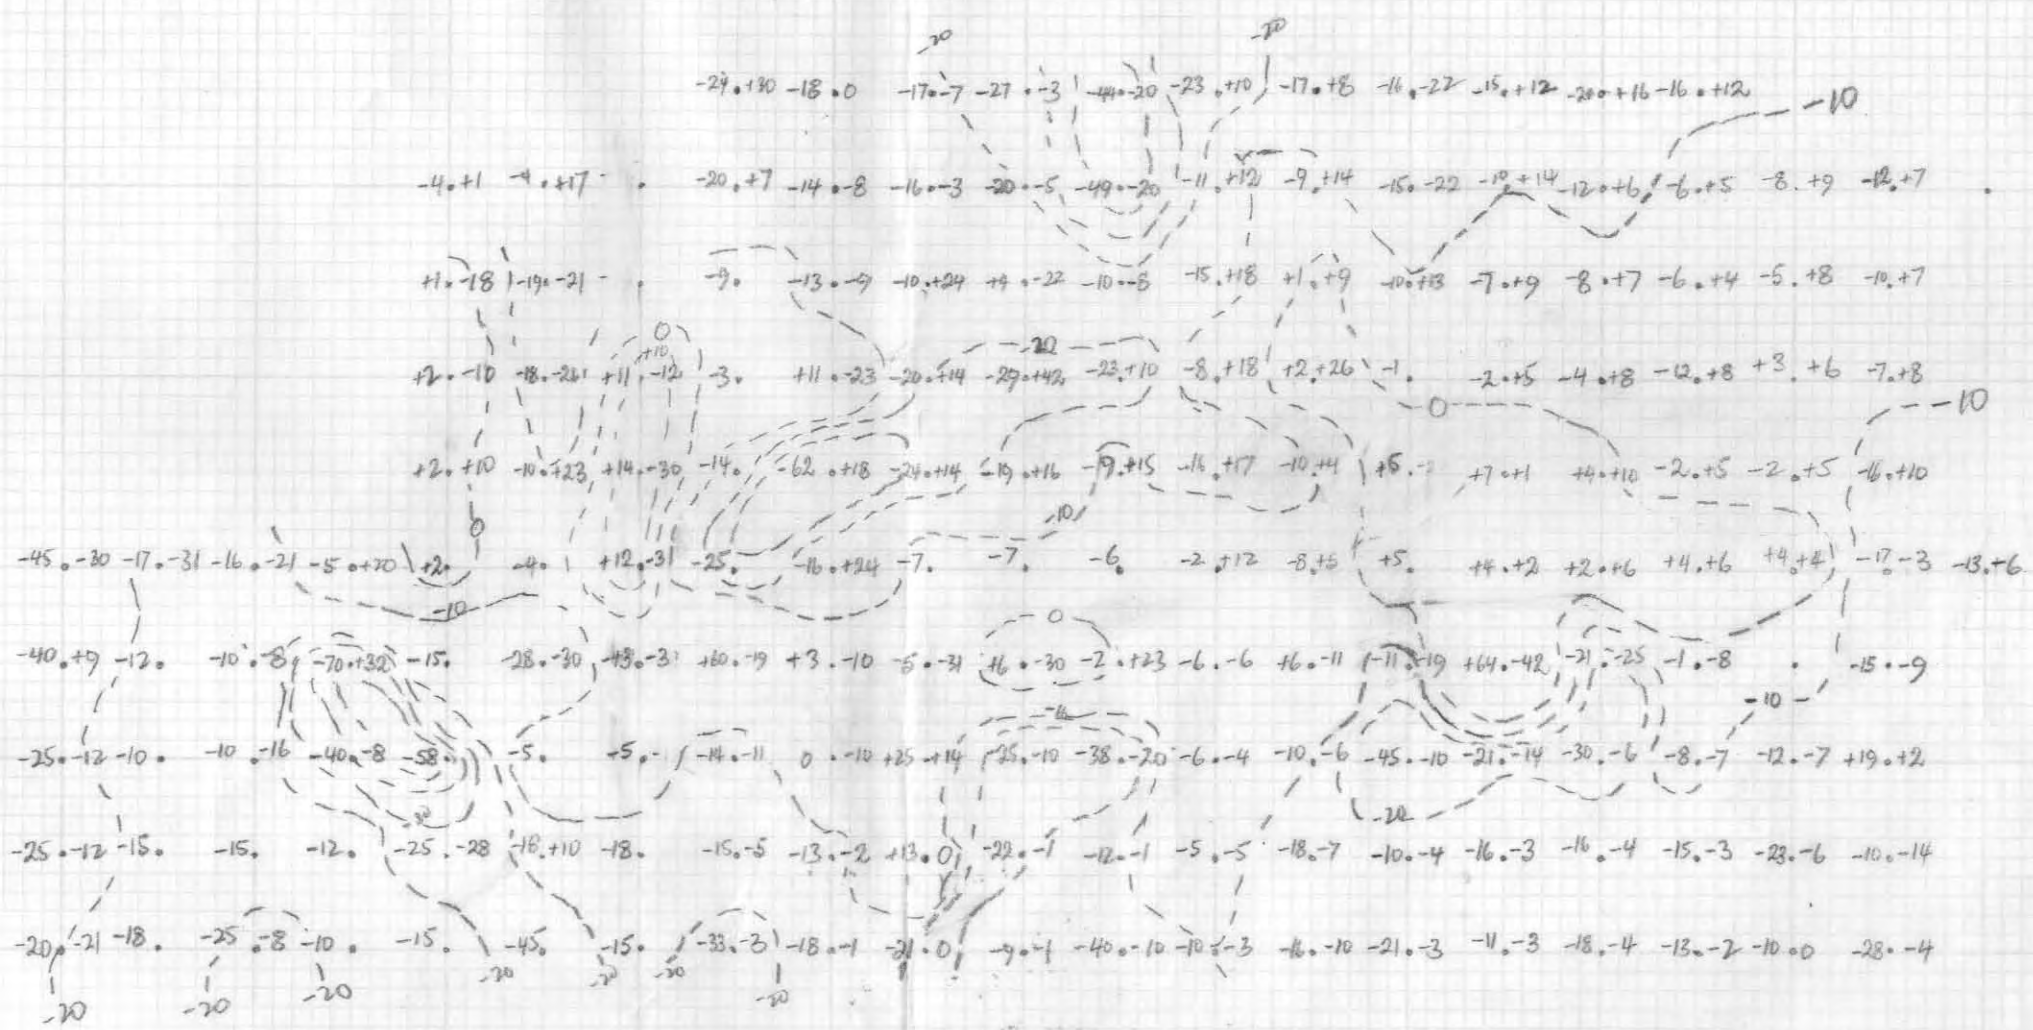 -20 -20
-24.+30 -18.0 -17.-7 -27.-3 -44.-20 -23.+10 -17.+8 -16.-22 -15.+12 -20.+16 -16.+12
-10
-4.+1 -4.+17 . -20.+7 -14.-8 -16.-3 -20.-5 -49.-20 -11.+12 -9.+14 -15.-22 -10.+14 -12.+6 -6.+5 -8.+9 -12.+7 .
+1.-18 -19.-21 . -9. -13.-9 -10.+24 +9.-22 -10.-8 -15.+18 +1.+9 -10.+13 -7.+9 -8.+7 -6.+4 -5.+8 -10.+7
0
+10 -20
+2.-10 -18.-26 +11.-12 -3. +11.-23 -20.+14 -29.+42 -23.+10 -8.+18 +2.+26 -1. -2.+5 -4.+8 -12.+8 +3.+6 -7.+8
0 -10
+2.+10 -10.+23 +14.-30 -14. -62.+18 -24.+14 -19.+16 -9.+15 -16.+17 -10.+4 +5. +7.+1 +4.+10 -2.+5 -2.+5 -16.+10
0 -10
-45.-30 -17.-31 -16.-21 -5.+20 +2. -4. +12.-31 -25. -16.+24 -7. -7. -6. -2.+12 -8.+5 +5. +4.+2 +2.+6 +4.+6 +4.+4 -17.-3 -13.+6
-10 0
-40.+9 -12. -10.-8 -70.+32 -15. -28.-30 +60.-19 +3.-10 -5.-31 +6.-30 -2.+23 -6.-6 +6.-11 -11.-19 +64.-42 -21.-25 -1.-8 . -15.-9
-10
-25.-12 -10. -10.-16 -40.-8 -58. -5. -5. -14.-11 0.-10 +25.+14 -25.-10 -38.-20 -6.-4 -10.-6 -45.-10 -21.-14 -30.-6 -8.-7 -12.-7 +19.+2
-20
-25.-12 -15. -15. -12. -25.-28 -18.+10 -18. -15.-5 -13.-2 +13.0 -22.-1 -12.-1 -5.-5 -18.-7 -10.-4 -16.-3 -16.-4 -15.-3 -23.-6 -10.-14
-20.-21 -18. -25.-8 -10. -15. -45. -15. -33.-3 -18.-1 -21.0 -9.-1 -40.-10 -10.-3 -16.-10 -21.-3 -11.-3 -18.-4 -13.-2 -10.0 -28.-4
-20 -20 -20 -20 -20 -20 -20